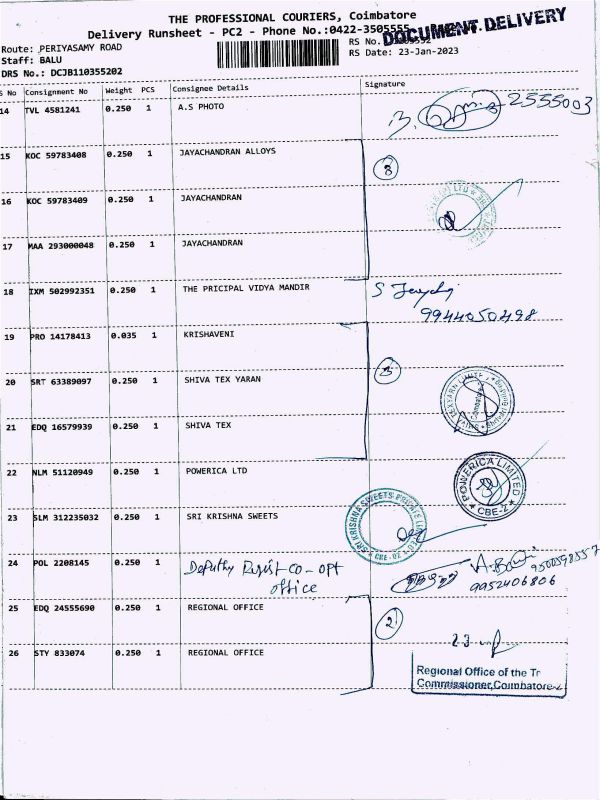 THE PROFESSIONAL COURIERS, Coimbatore
Delivery Runsheet - PC2 - Phone No.:0422-3505555
DOCUMENT DELIVERY
Route: PERIYASAMY ROAD
RS No.
Staff: BALU
RS Date: 23-Jan-2023
DRS No.: DCJB110355202
S No Consignment No Weight PCS Consignee Details Signature
14 TVL 4581241 0.250 1 A.S PHOTO 2555003
15 KOC 59783408 0.250 1 JAYACHANDRAN ALLOYS
3
16 KOC 59783409 0.250 1 JAYACHANDRAN
17 MAA 293000048 0.250 1 JAYACHANDRAN
18 IXM 502992351 0.250 1 THE PRICIPAL VIDYA MANDIR
9944050498
19 PRO 14178413 0.035 1 KRISHAVENI
20 SRT 63389097 0.250 1 SHIVA TEX YARAN
3
21 EDQ 16579939 0.250 1 SHIVA TEX
22 NLM 51120949 0.250 1 POWERICA LTD
POWERICA LIMITED
CBE-2
23 SLM 312235032 0.250 1 SRI KRISHNA SWEETS
SRI KRISHNA SWEETS PRIVATE LIMITED
24 POL 2208145 0.250 1 Deputhy Regist-co-opt
office
9500598557
9952406806
25 EDQ 24555690 0.250 1 REGIONAL OFFICE
2
23
26 STY 833074 0.250 1 REGIONAL OFFICE
Regional Office of the Tr
Commissioner,Coimbatore-2